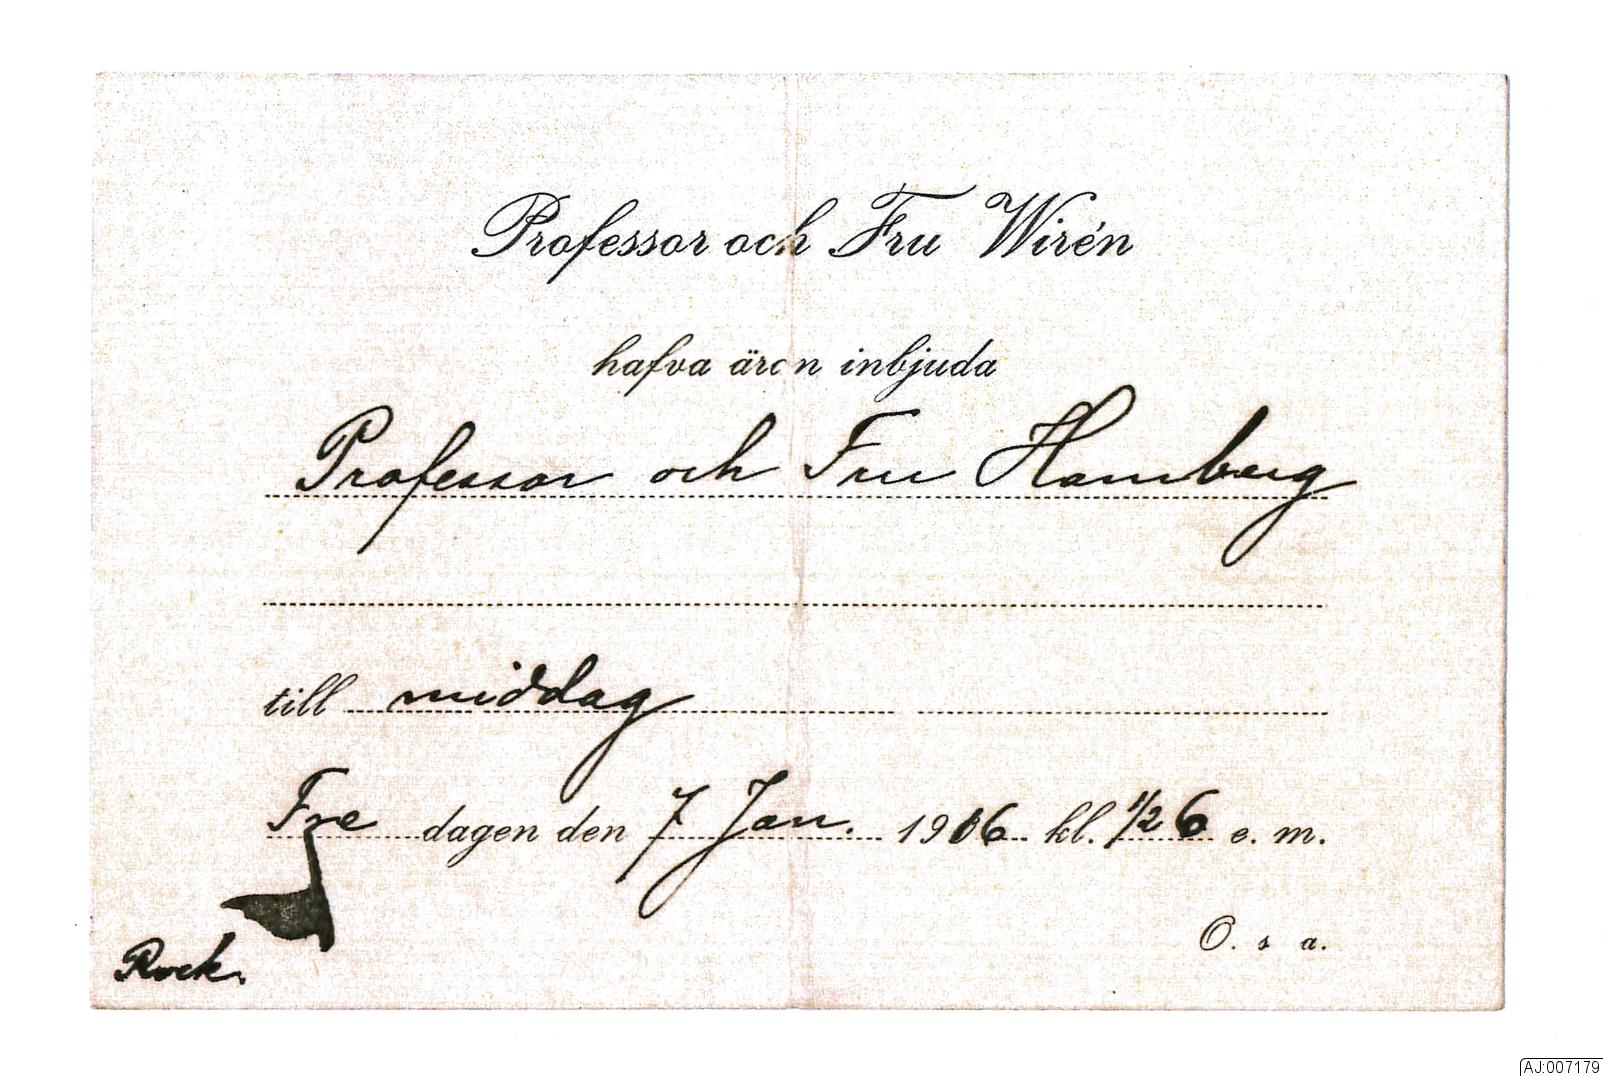 Professor och Fru Wirén
hafva äran inbjuda
Professor och Fru Hamberg
till middag
Fredagen den 7 Jan. 1916 kl. 1/2 6 e. m.
O. s. a.
Rock.
AJ:007179